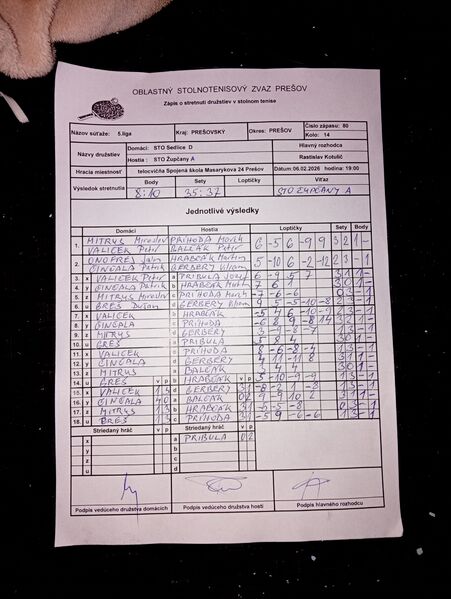 OBLASTNÝ STOLNOTENISOVÝ ZVÄZ PREŠOV
Zápis o stretnutí družstiev v stolnom tenise
Názov súťaže: 5.liga Kraj: PREŠOVSKÝ Okres: PREŠOV Číslo zápasu: 80
Kolo: 14
Názvy družstiev Domáci: STO Sedlice D Hlavný rozhodca
Hostia : STO Župčany A Rastislav Kotulič
Hracia miestnosť telocvičňa Spojená škola Masarykova 24 Prešov Dátum:06.02.2026 hodina: 19:00
Výsledok stretnutia Body Sety Loptičky Víťaz
8:10 35:37 STO ŽUPČANY A
Jednotlivé výsledky
Domáci Hostia Loptičky Sety Body
1. MITRUS Miroslav PRÍHODA 6 -5 6 -9 9 3 2 1 -
VALIČEK Peter BALČÁK Peter
2. HRABČÁK Martin -5 -10 6 -2 -12
ČINČALA Patrik GERBERY
3. x VALIČEK Peter a PRIBULA 6 -9 5 7 3 1 1 -
4. y ČINČALA Patrik b HRABČÁK 7 6 1 3 0 1 -
5. z MITRUS Miroslav c PRÍHODA -7 -6 -6 0 3 - 1
6. u GREŠ Dušan d GERBERY 9 -5 -10 -8
7. x VALIČEK b HRABČÁK
8. y ČINČALA c PRÍHODA
9. z MITRUS d GERBERY
10. u GREŠ a PRIBULA 5 8 4 3 0 1 -
11. x VALIČEK c PRÍHODA 8 -6 -8 -4 1 3 - 1
12. y ČINČALA d GERBERY 4 11 -11 8 3 1 1 -
13. z MITRUS a BALČÁK 3 0 1 -
14. u GREŠ v p b HRABČÁK v p 5 -10 -9 -9 1 3 - 1
15. x VALIČEK 1 3 d GERBERY 3 1 1 3 - 1
16. y ČINČALA 4 0 a BALČÁK 0 2 3 1 1 -
17. z MITRUS 1 3 b HRABČÁK 3 1 0 3 - 1
18. u GREŠ 1 3 c PRÍHODA 3 1 -5 9 -6 -6 1 3 - 1
Striedaný hráč v p Striedaný hráč v p
x a PRIBULA 0 2
y b
z c
u d
Podpis vedúceho družstva domácich Podpis vedúceho družstva hostí Podpis hlavného rozhodcu